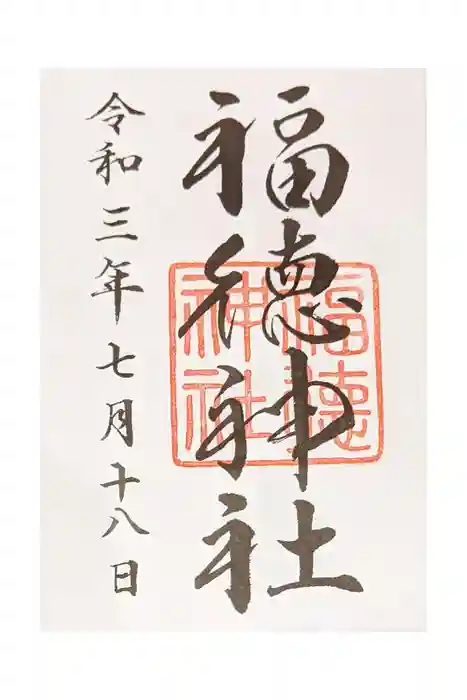 福徳神社
福徳
神社
令和三年七月十八日